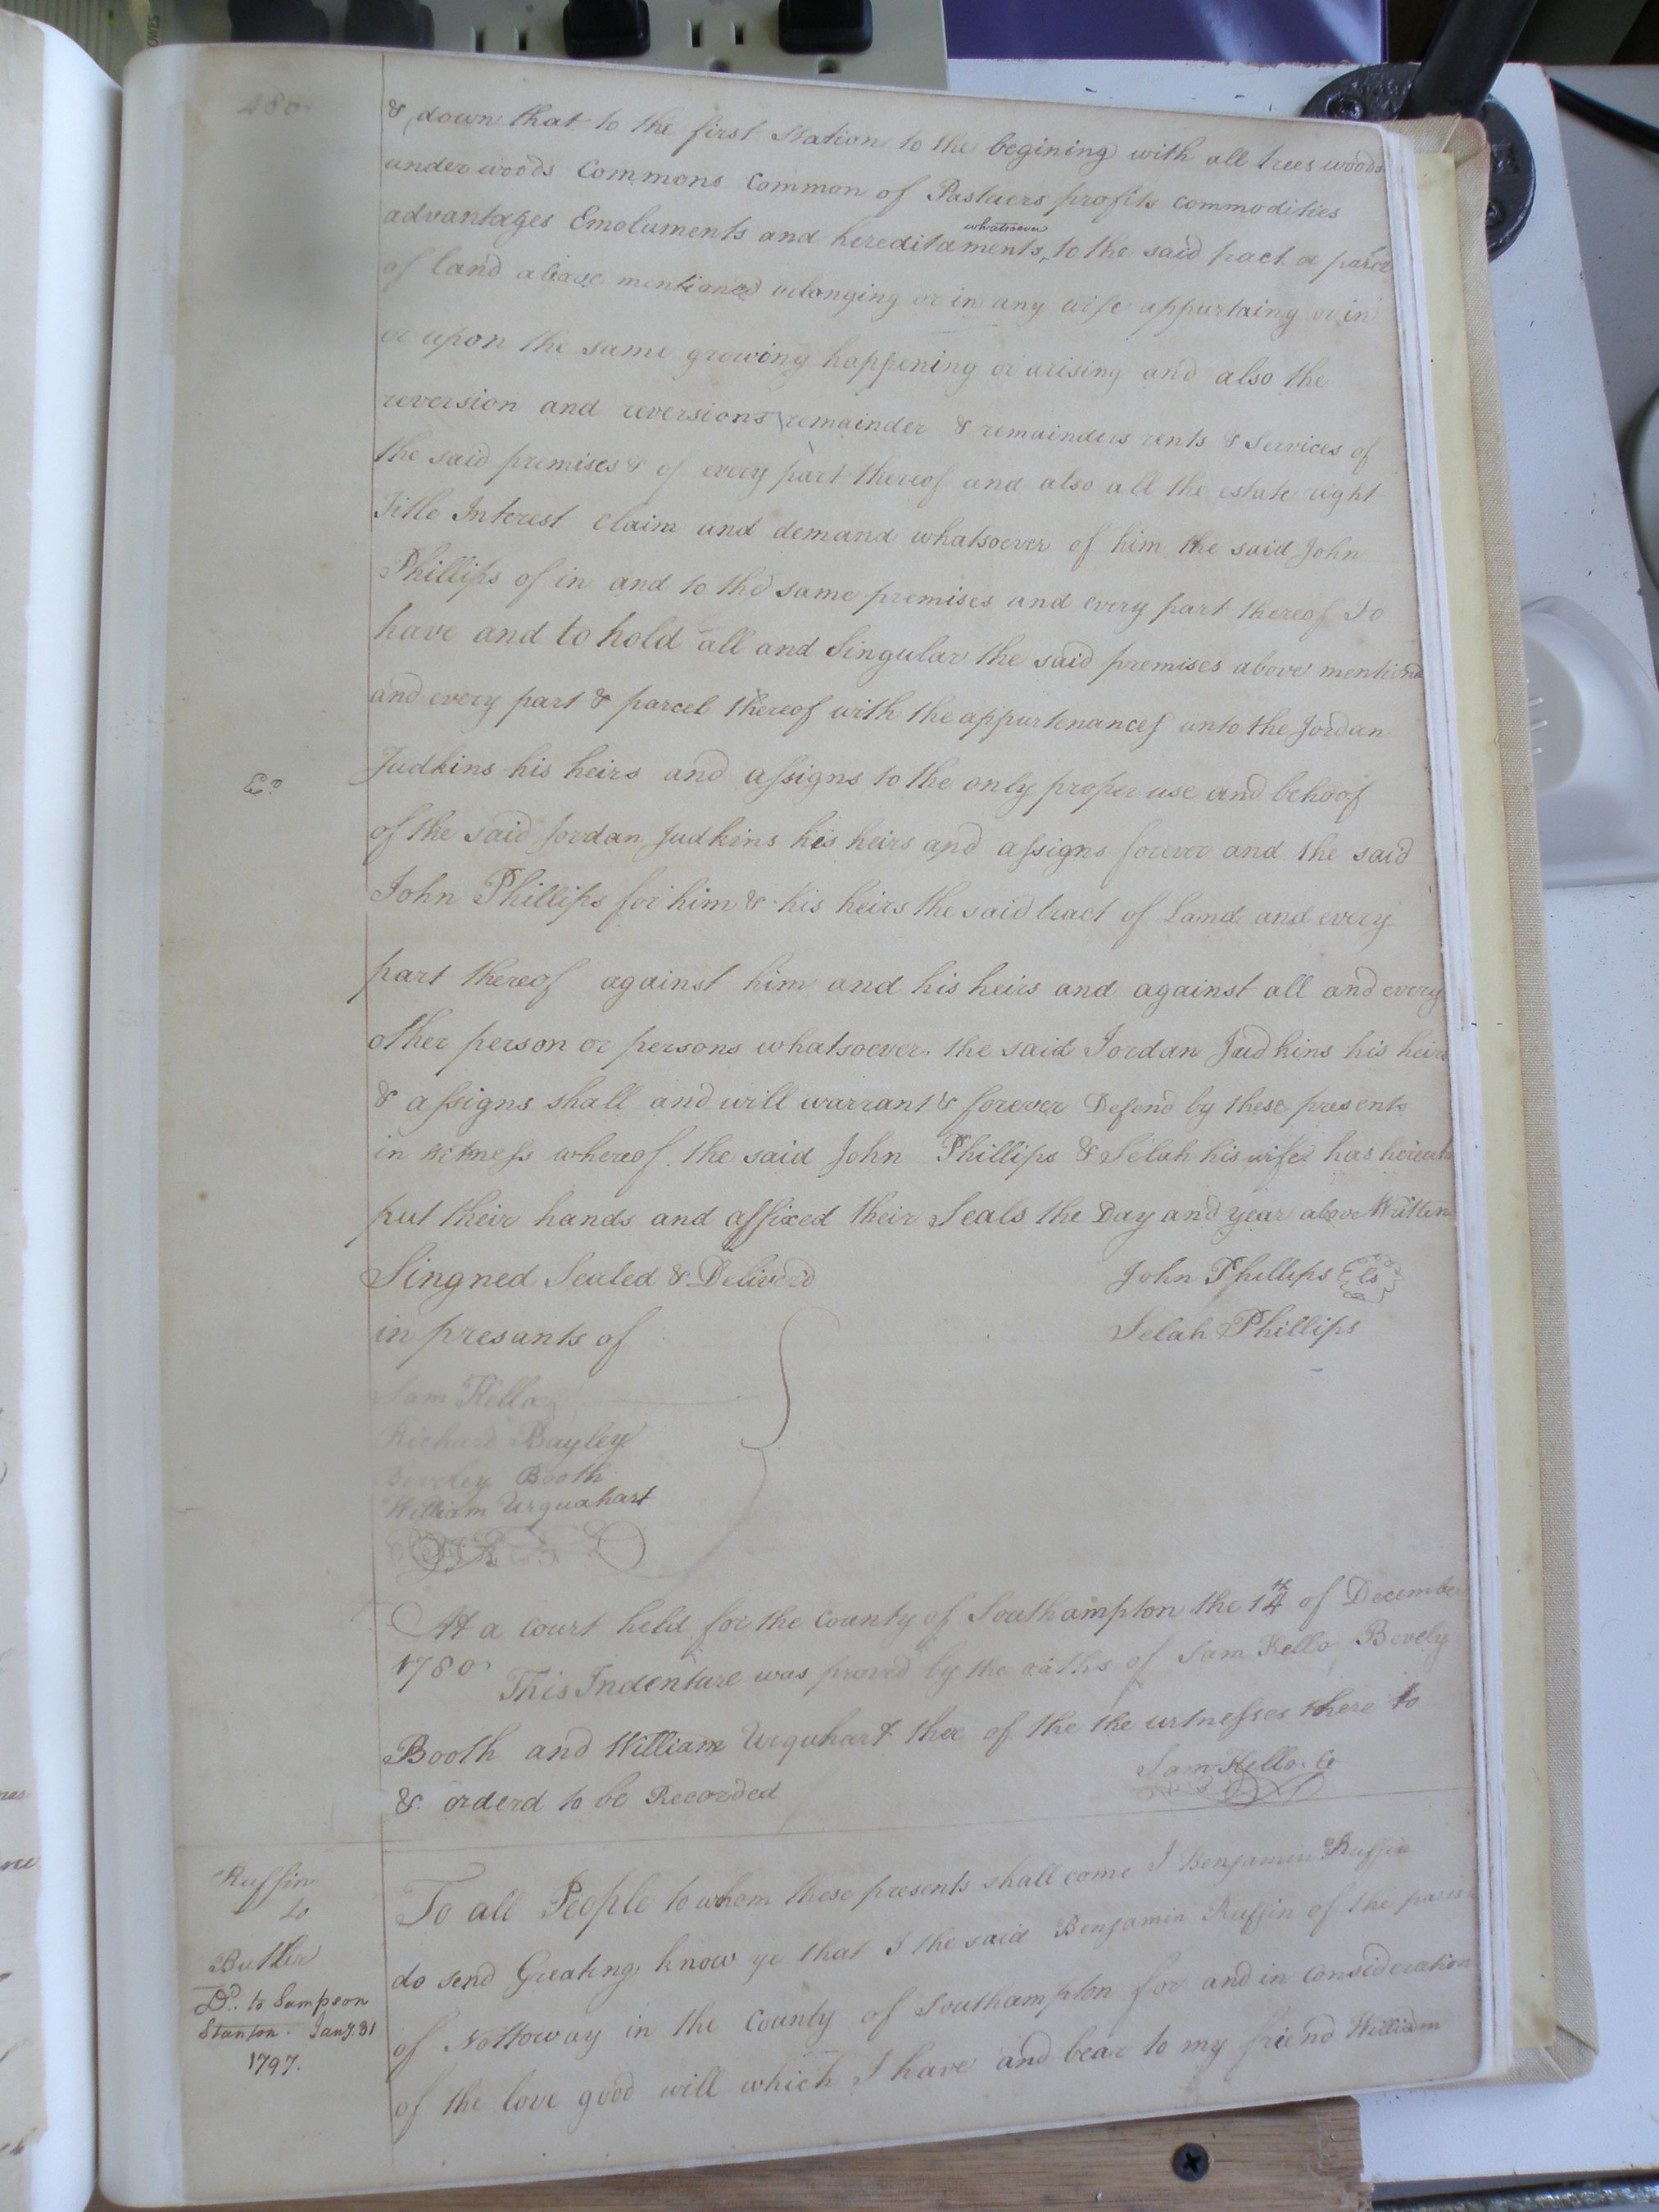 480
& down that to the first Station to the begining with all trees woods
under woods Commons Common of Pastuers profits commodities
advantages Emoluments and hereditaments whatsoever to the said tract or parce
of land above mentioned belonging or in any wise appurtaing or in
or upon the same growing happening or arising and also the
reversion and reversions remainder & remainders rents & Services of
the said premises & of every part thereof and also all the estate right
Title Interest Claim and demand whatsoever of him the said John
Phillips of in and to the same premises and every part thereof To
have and to hold all and Singular the said premises above mentiond
and every part & parcel thereof with the appurtenances unto the Jordan
Judkins his heirs and assigns to the only proper use and behoof
of the said Jordan Judkins his heirs and assigns forever and the said
John Phillips for him & his heirs the said tract of Land and every
part thereof against him and his heirs and against all and every
other person or persons whatsoever the said Jordan Judkins his heirs
& assigns shall and will warrant & forever Defend by these presents
in witness whereof the said John Phillips & Selah his wife has
put their hands and affixed their Seals the Day and year above Written
Singned Sealed & Deliverd
John Phillips Ls
in presants of
Selah Phillips
Sam Kello
Richard Bayley
Beverley Booth
William Urquahart
At a court held for the County of Southampton the 14th of December
1780 This Indenture was proved by the oaths of Sam Kello Bevely
Booth and William Urquhart thee of the the witnesses there to
& orderd to be Recorded
Sam Kello. C
Ruffin
to
Buther
Dd. to Sampson
Stanton. Jany. 31
1797.
To all People to whom these presents shall come I Benjamin Ruffin
do send Greating know ye that I the said Benjamin Ruffin of the parish
of Nottoway in the County of Southampton for and in Consideration
of the love good will which I have and bear to my friend William